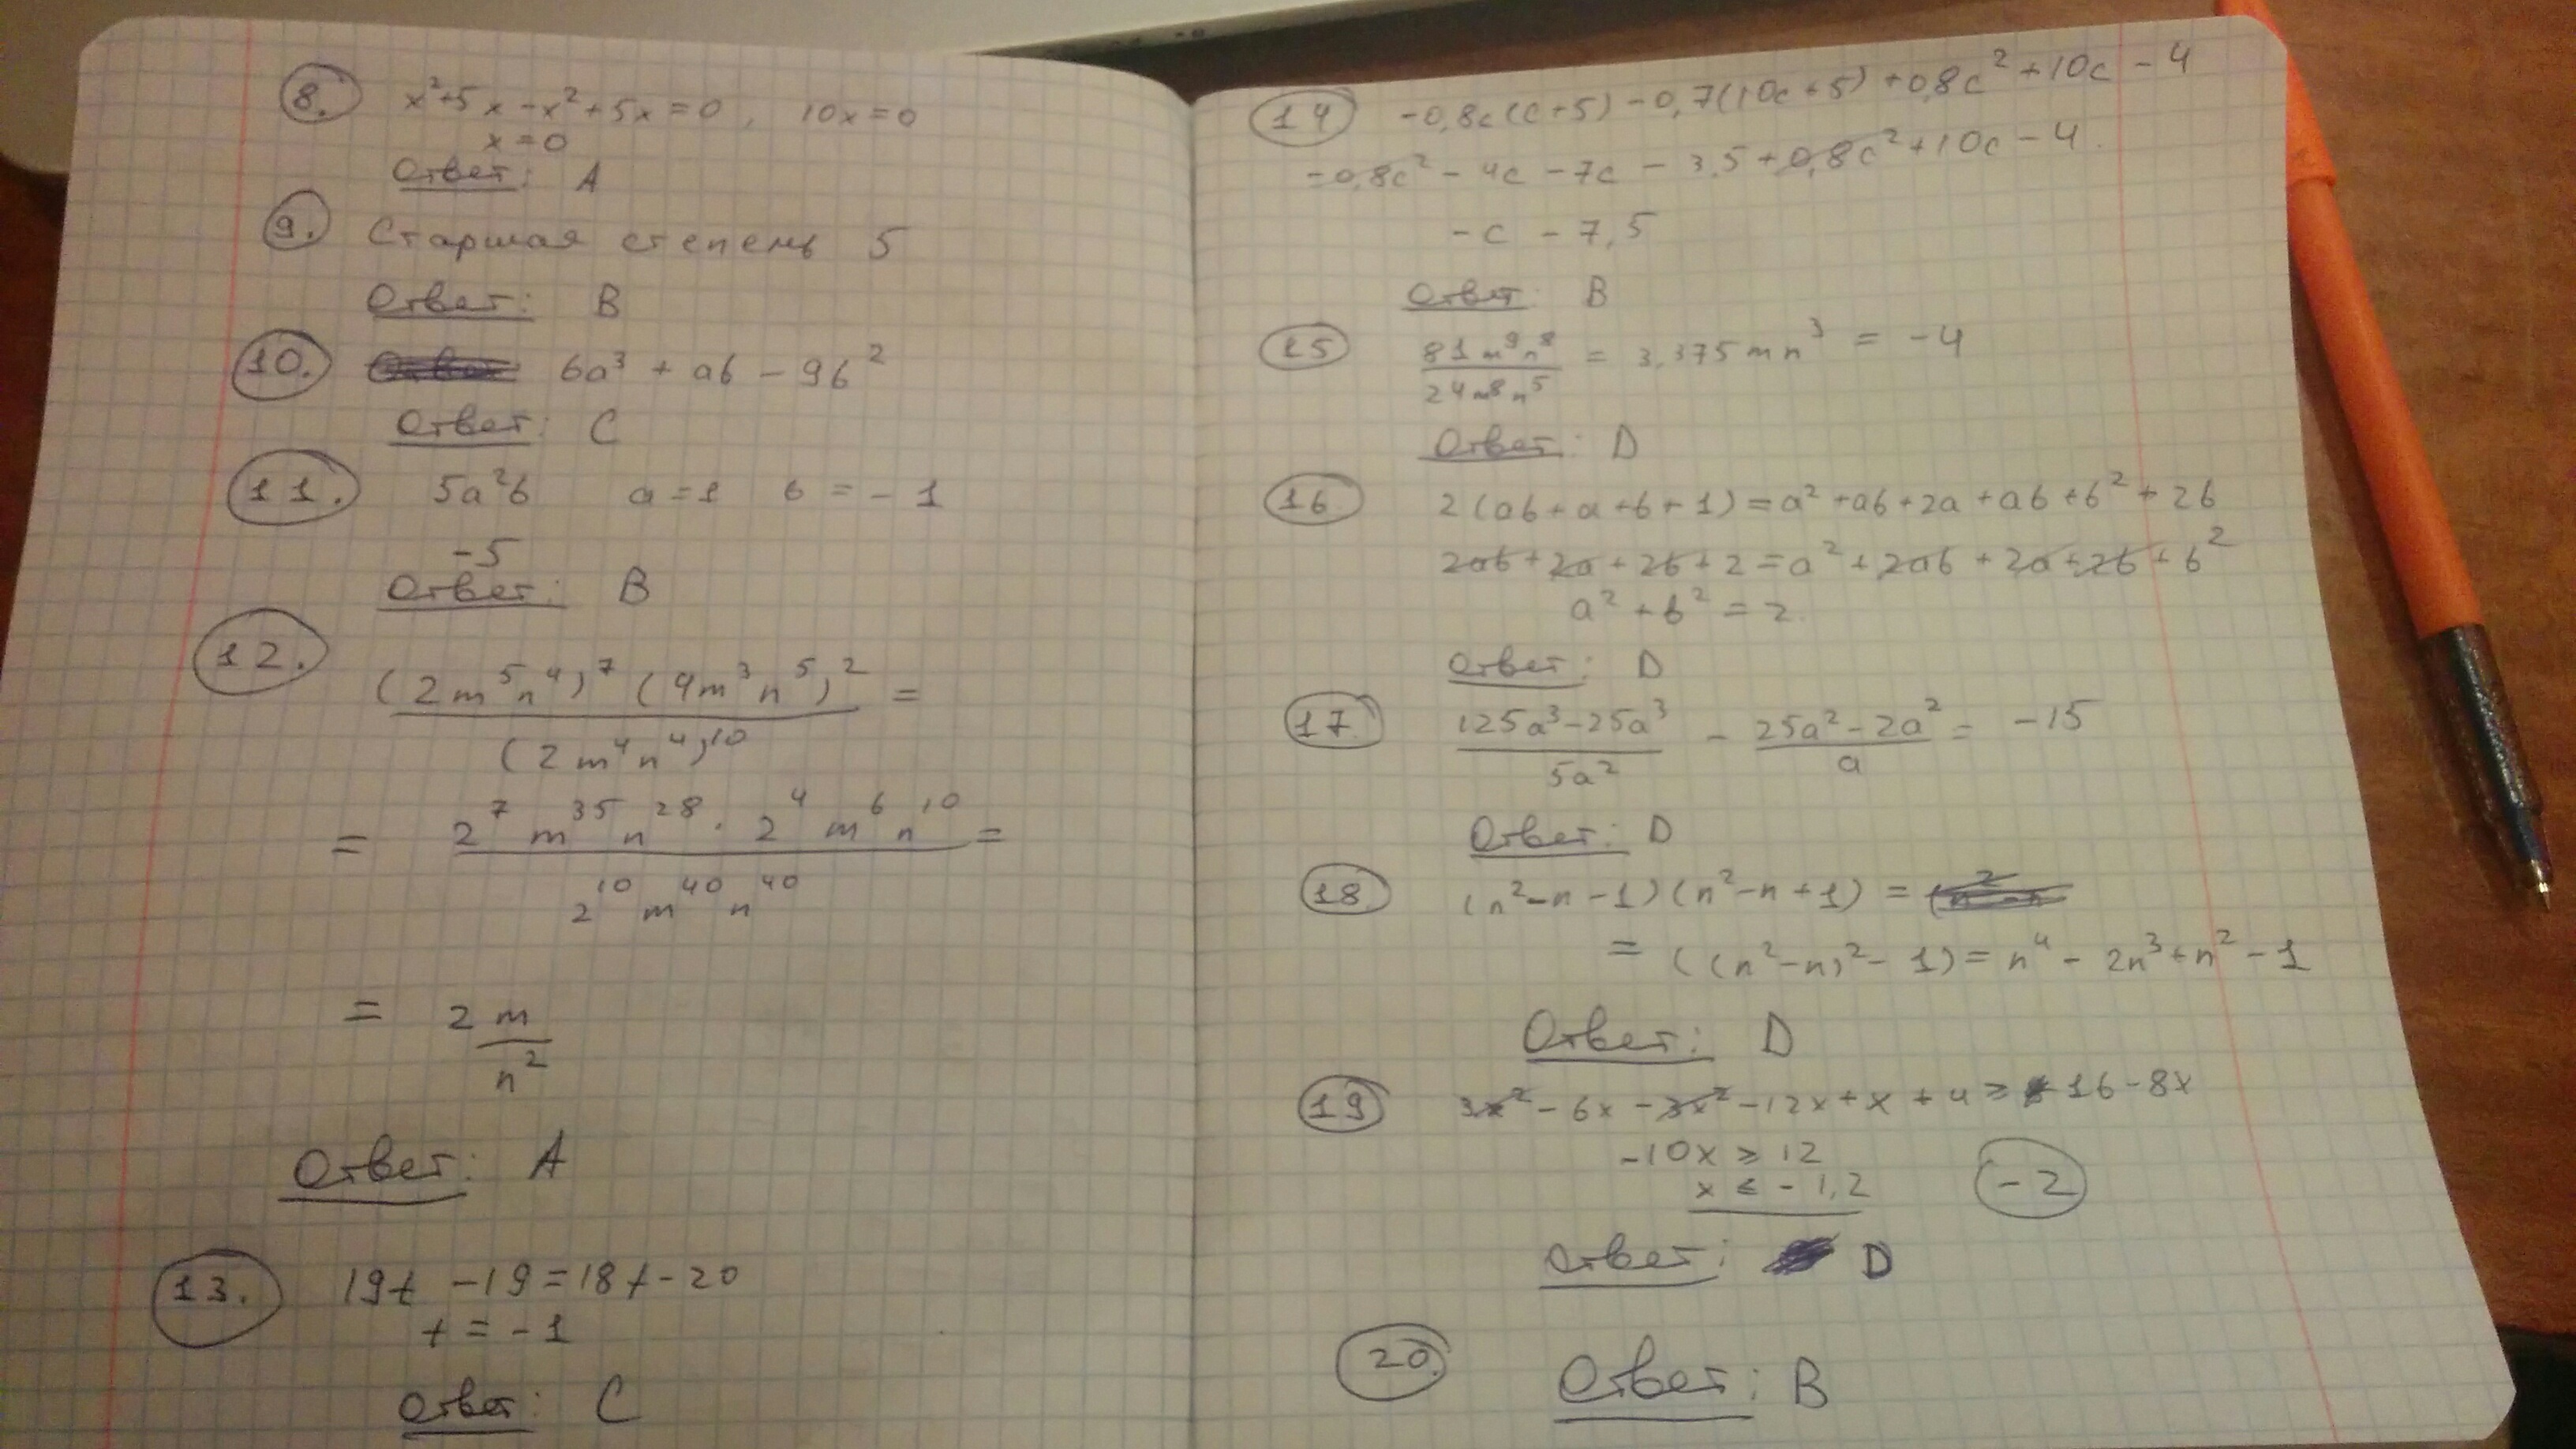 8. x²+5x-x²+5x=0, 10x=0
x=0
Ответ: A
9. Старшая степень 5
Ответ: B
10. 6a³ + ab - 9b²
Ответ: C
11. 5a²b a=1 b=-1
-5
Ответ: B
12.
(2m⁵n⁴)⁷ (4m³n⁵)² =
(2m⁴n⁴)¹⁰
= 2⁷ m³⁵ n²⁸ · 2⁴ m⁶ n¹⁰ =
2¹⁰ m⁴⁰ n⁴⁰
= 2 m
n²
Ответ: A
13. 19t - 19 = 18t - 20
t = -1
Ответ: C
14 -0,8c(c+5) - 0,7(10c+5) + 0,8c² + 10c - 4
-0,8c² - 4c - 7c - 3,5 + 0,8c² + 10c - 4.
-c - 7,5
Ответ: B
15 81m⁹n⁸ = 3.375mn³ = -4
24m⁸n⁵
Ответ: D
16 2(ab+a+b+1) = a²+ab+2a+ab+b²+2b
2ab+2a+2b+2=a²+2ab+2a+2b+b²
a²+b²=2.
Ответ: D
17. 125a³-25a³ - 25a²-2a² = -15
5a² a
Ответ: D
18. (n²-n-1)(n²-n+1) =
= ((n²-n)²-1) = n⁴ - 2n³+n²-1
Ответ: D
19 3x²-6x-3x²-12x+x+4≥16-8x
-10x ≥ 12
x ≤ -1,2 -2
Ответ: D
20. Ответ: B